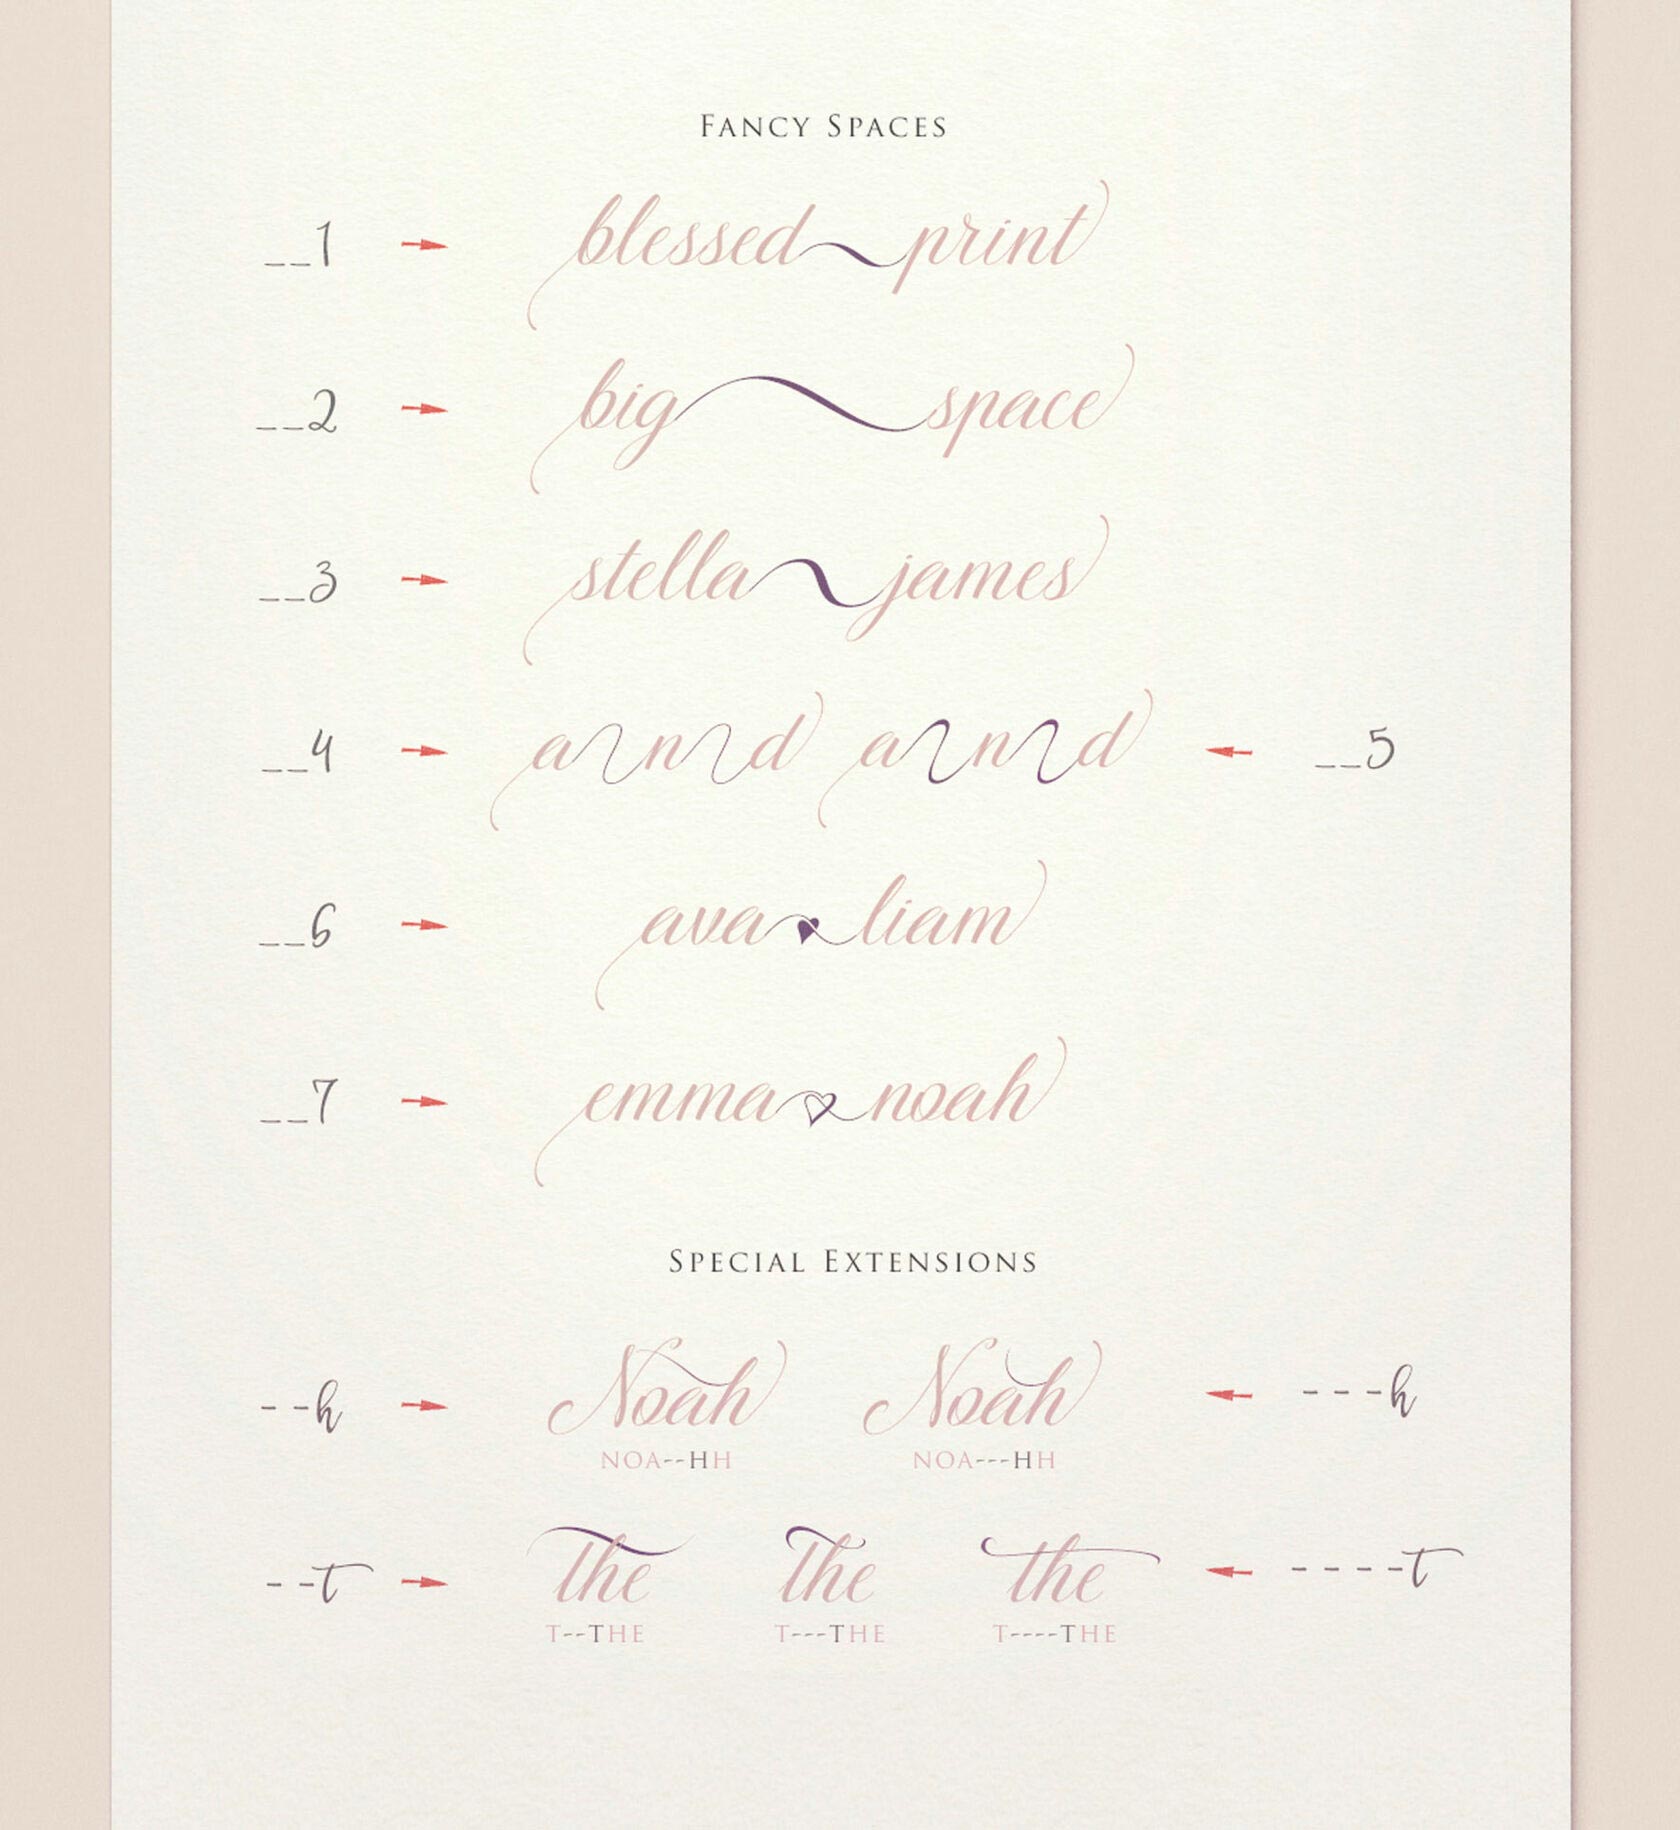 Fancy Spaces
__1 blessed print
__2 big space
__3 stella james
__4 a n d a n d __5
__6 ava liam
__7 emma noah
Special Extensions
--h Noah Noah ---h
NOA--HH NOA---HH
--t the the the ----t
T--THE T---THE T----THE